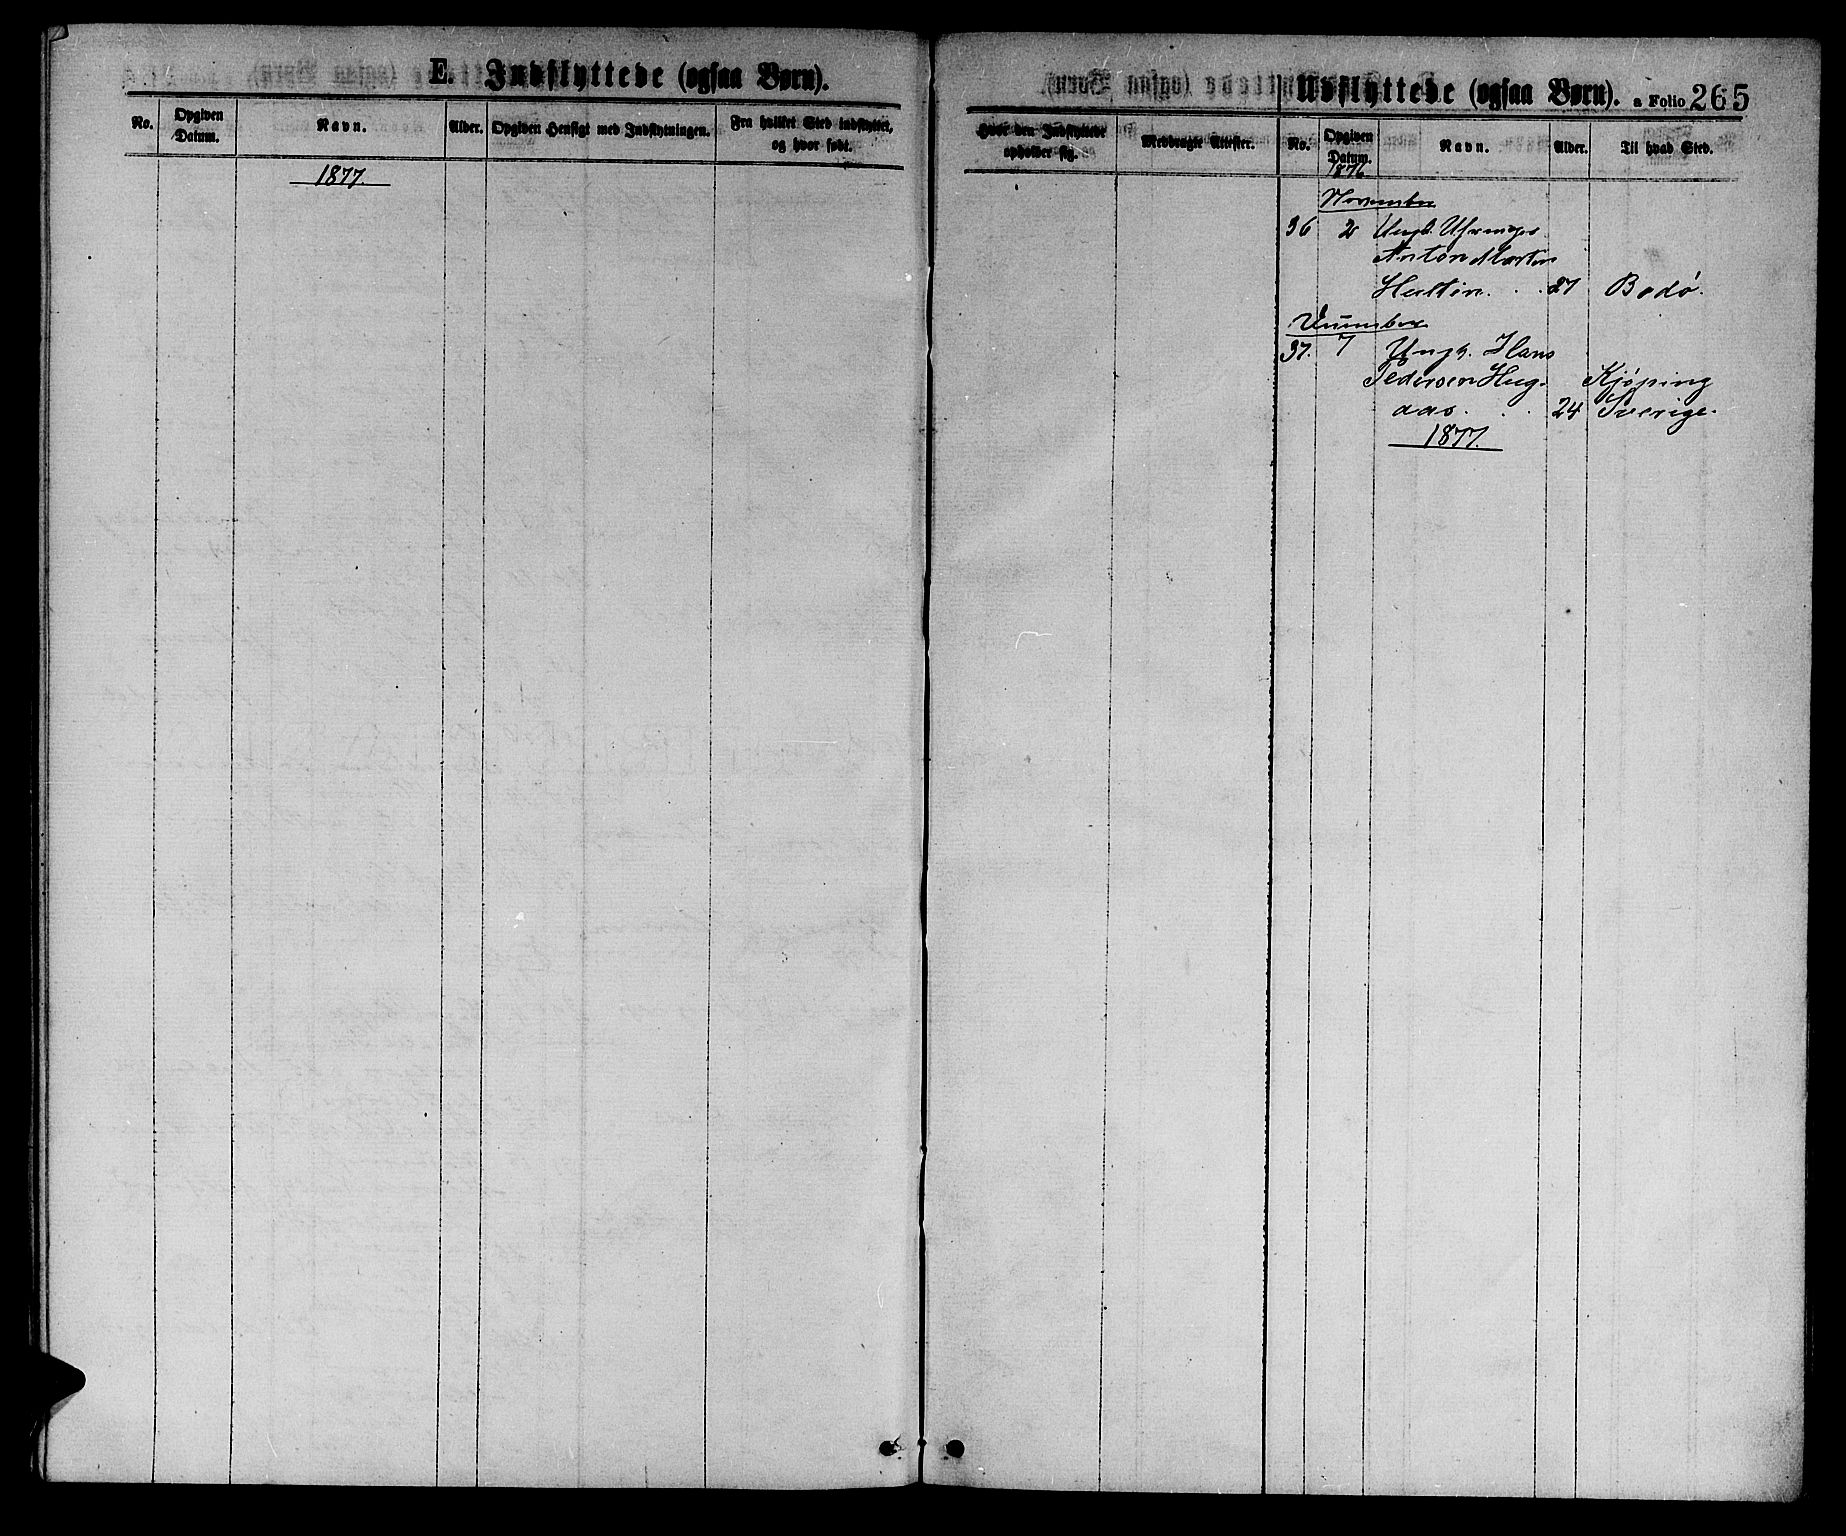 E. Indflyttede (ogsaa Børn).
No.
Opgiven
Datum.
Navn.
Alder.
Opgiven Hensigt med Indflytningen.
Fra hvilket Sted indflyttet,
og hvor født.
1877.
Udflyttede (ogsaa Børn). a Folio 265
Hvor den Indflyttede
opholder sig.
Medbragte Attester.
No.
Opgiven
Datum.
Navn.
Alder.
Til hvad Sted.
1876
November
36 2 Ungk.
Anton Morten
27 Bodö.
37. 7 Ungk. Hans
Pedersen Hug- Kjöping
aas. . . 24 Sverige.
1877.